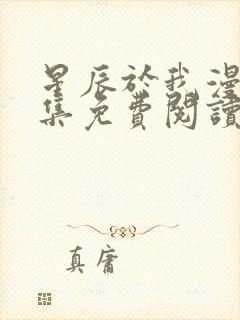 星辰於我漫
集免費閱讀
真庸